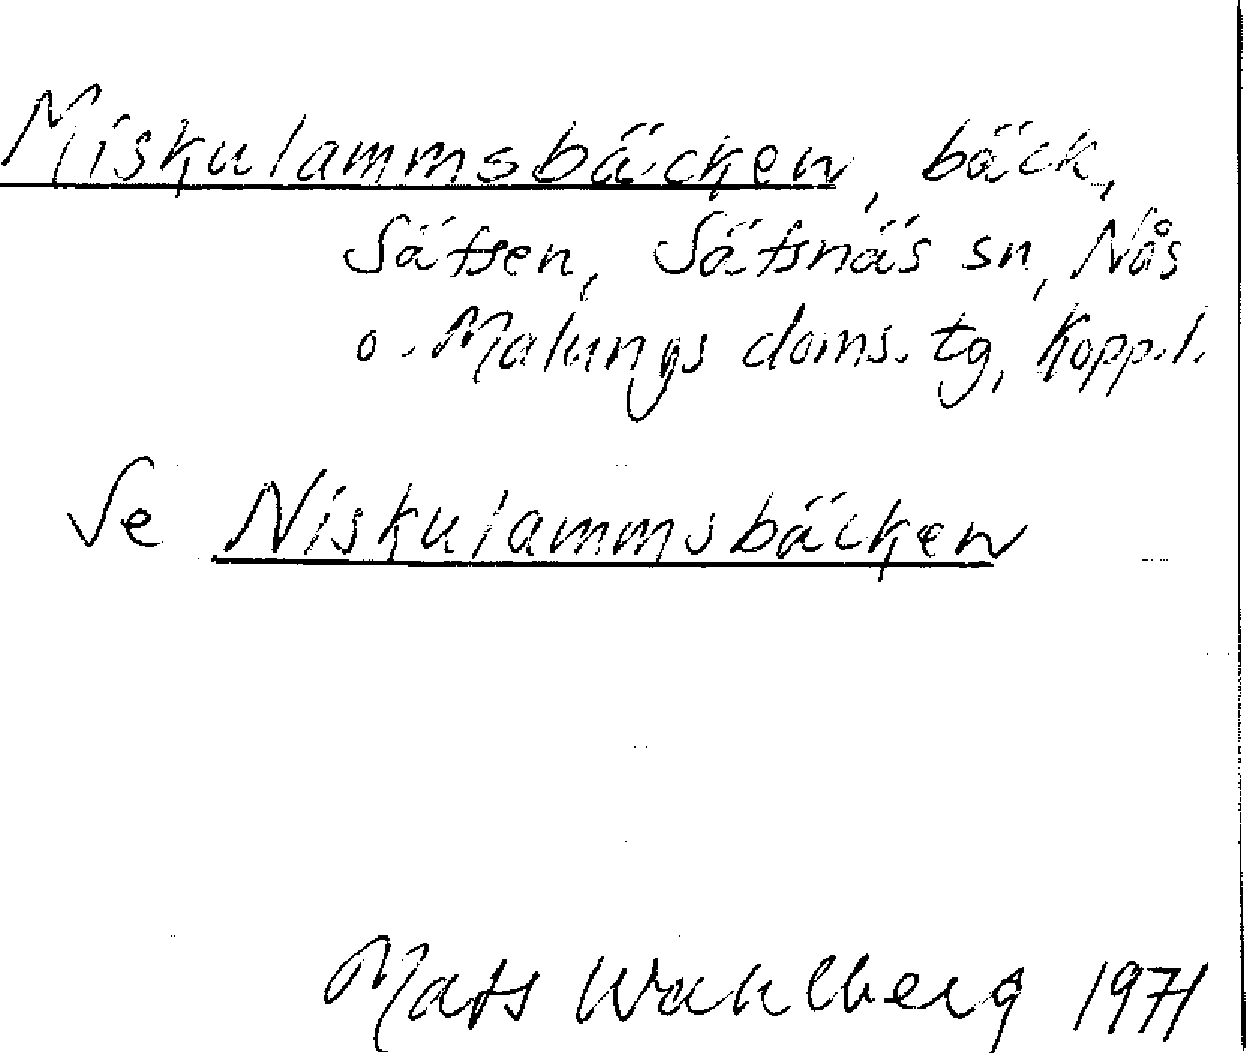 Miskulammsbäcken, bäck,
Sätsen, Sätsnäs sn, Nås
o. Malungs doms. tg, Kopp.l.
Se Niskulammsbäcken
Mats Wahlberg 1971